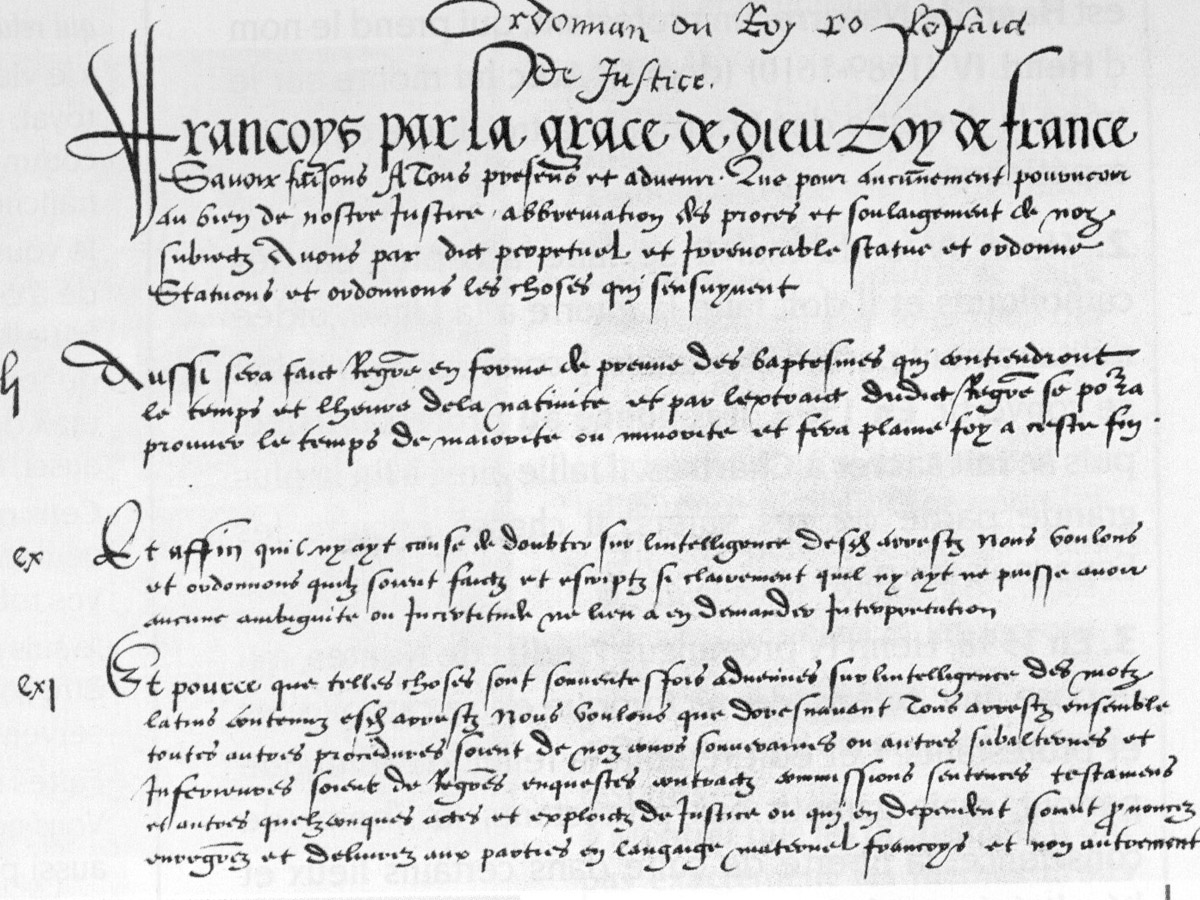 Ordonnan du Roy so le faict
de Justice.
Francoys par la grace de dieu Roy de france
Savoir faisons A Tous presens et advenir. Que pour aucunement pourveoir
au bien de nostre Justice, abbreviation des proces et soulaigement de noz
subiectz Avons par edict perpetuel et Irrevocable statue et ordonne
Statuons et ordonnons les choses qui sensuyvent
Aussi sera faict Regre en forme de preuve des baptesmes qui contiendront
le temps et lheure dela nativite et par lextraict dudict Regre se pora
prouver le temps de maiorite ou minorite et fera plaine foy a ceste fin.
cx Et affin quil ny ayt cause de doubter sur lintelligence desdictz arrestz Nous voulons
et ordonnons quilz soient faictz et escriptz si clairement quil ny ayt ne puisse avoir
aucune ambiguite ou Incertitude ne lieu a en demander Interpretation
cxi Et pource que telles choses sont souventesfois advenues sur lintelligence des motz
latins contenuz esdictz arrestz Nous voulons que doresnavant Tous arrestz ensemble
toutes autres procedures soient de noz cours souveraines ou autres subalternes et
Inferieures soient de Regres enquestes contractz commissions sentences testamens
et autres quelzconques actes et exploictz de Justice ou qui en dependent soient prononcez
enregrez et delivrez aux parties en langaige maternel francoys et non autrement